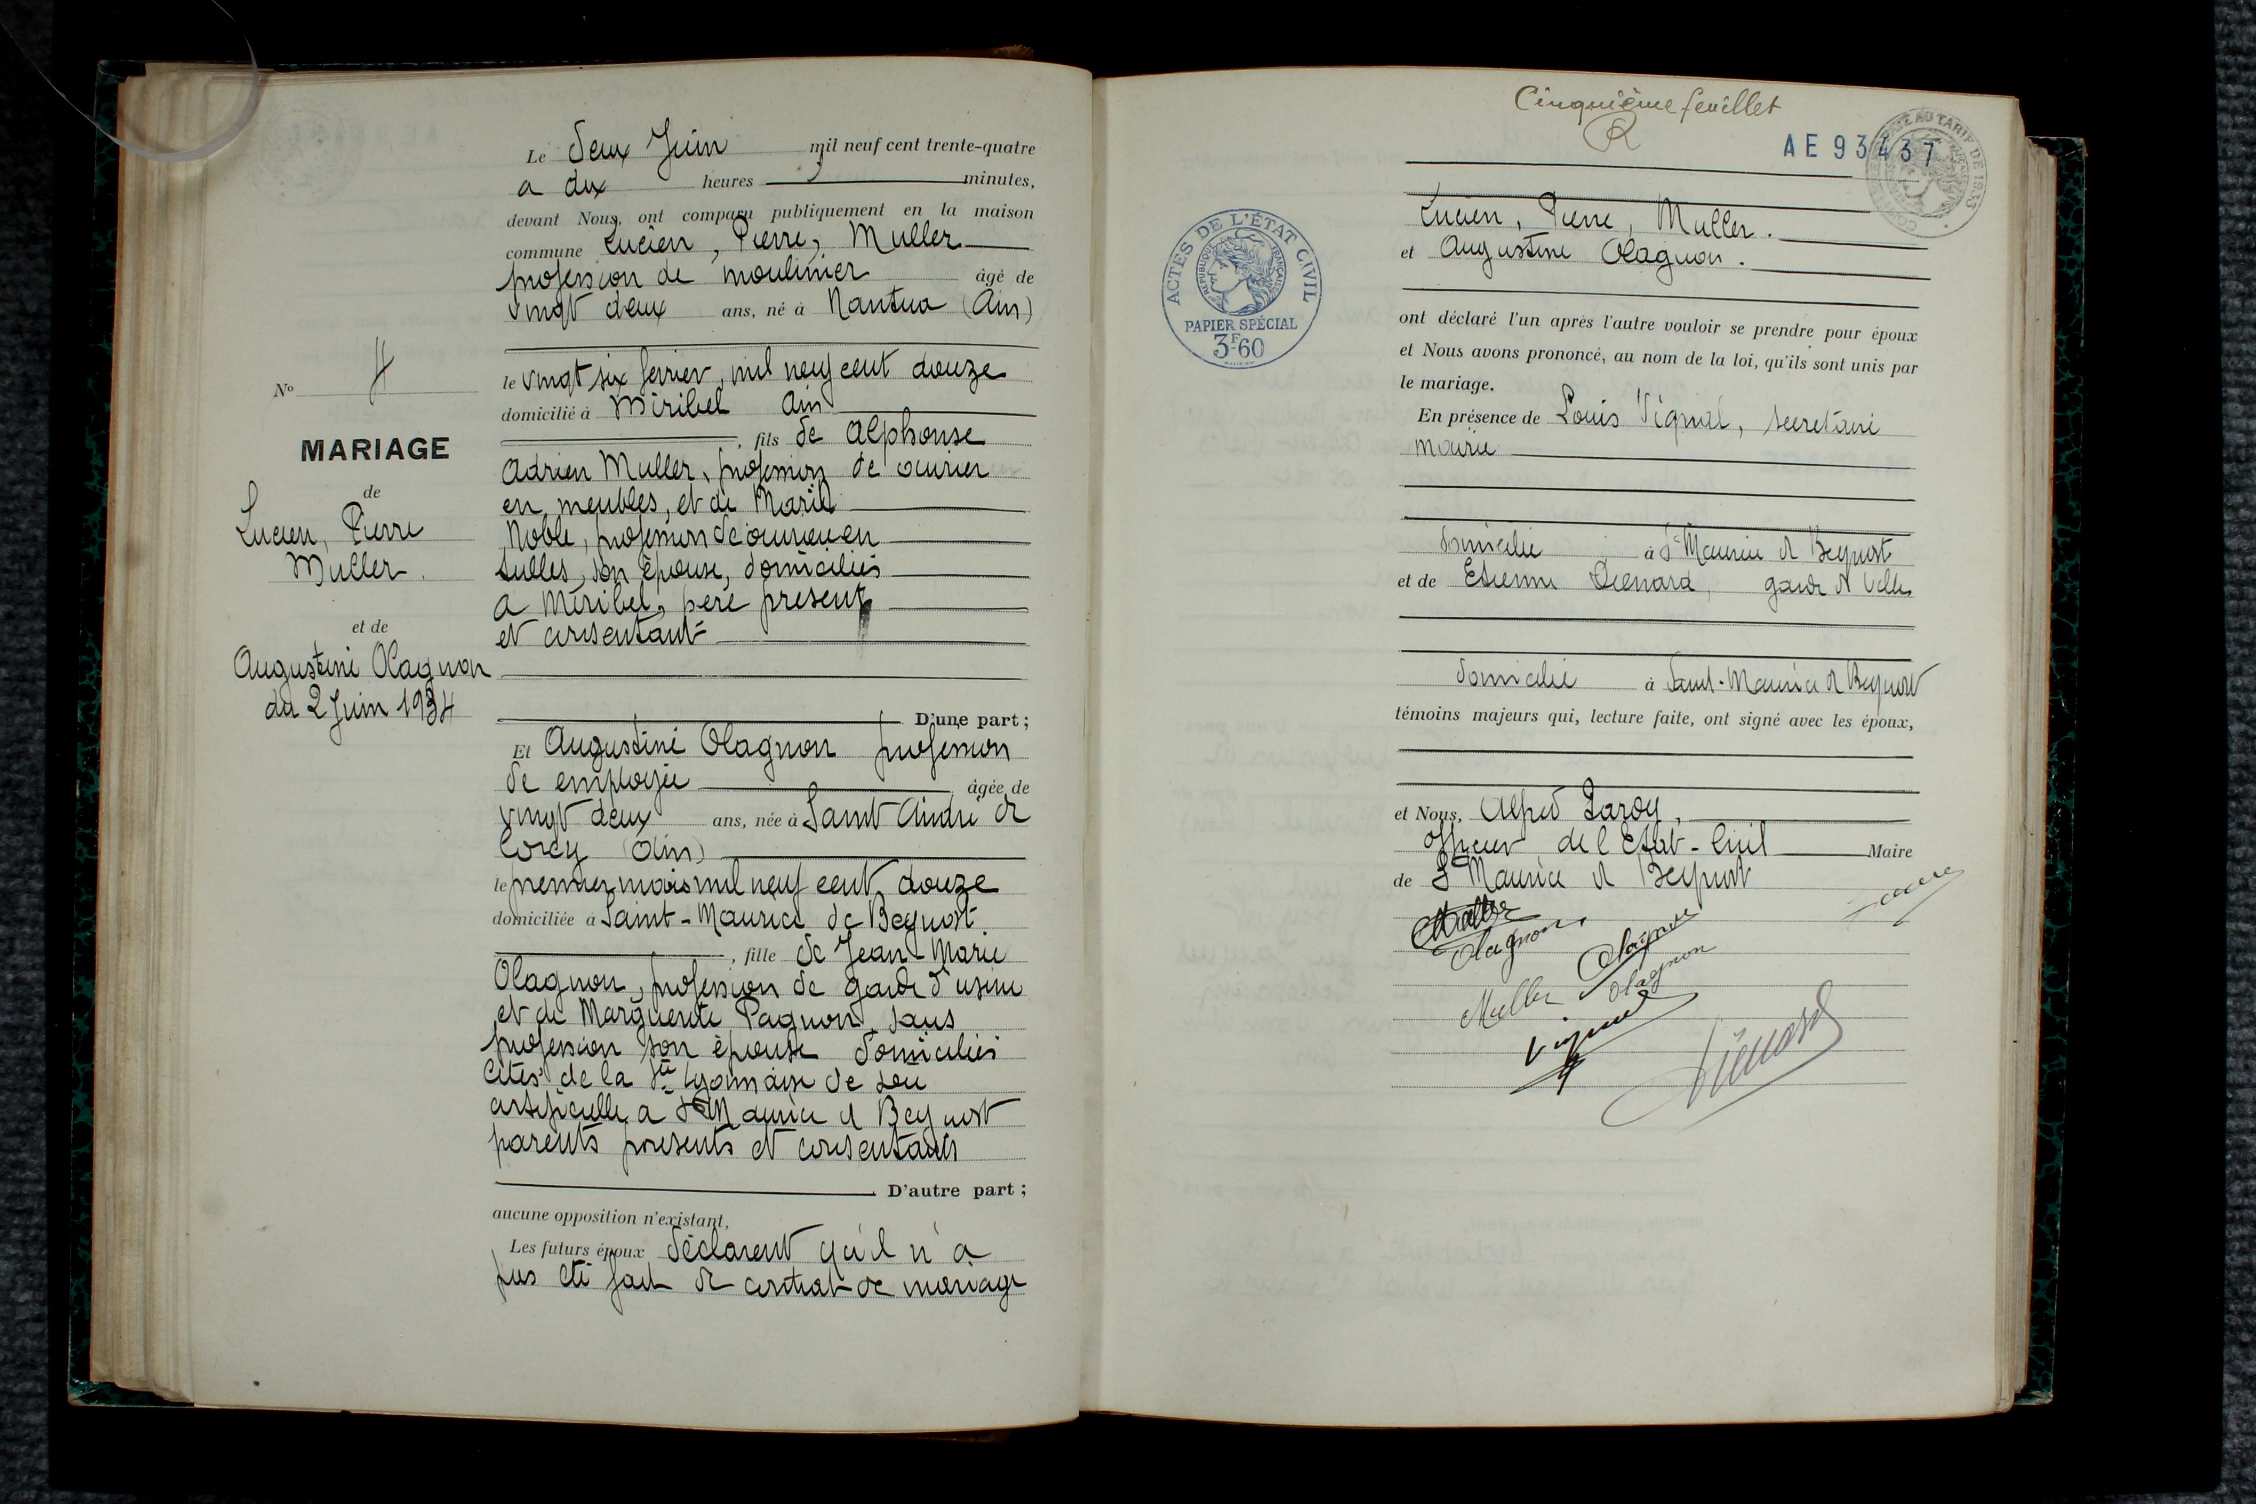 N° 4
MARIAGE
de
Lucien, Pierre
Muller.
et de
Augustine Olagnon
du 2 Juin 1934
Le deux Juin mil neuf cent trente-quatre
a dix heures minutes,
devant Nous, ont comparu publiquement en la maison
commune Lucien, Pierre, Muller
profession de moulinier âgé de
vingt deux ans, né à Nantua (Ain)
le vingt six février, mil neuf cent douze
domicilié à Miribel Ain.
, fils de Alphonse
Adrien Muller, profession de ouvrier
en meubles, et de Marie
Noble, profession de ouvrière en
tulles, son épouse, domiciliés
a Miribel, père présent
et consentant
D'une part ;
Et Augustine Olagnon profession
de employée âgée de
vingt deux ans, née à Saint André de
Corcy (Ain)
le premier mars mil neuf cent douze
domiciliée à Saint-Maurice de Beynost.
, fille de Jean-Marie
Olagnon, profession de garde d'usine
et de Marguerite Pagnon sans
profession son épouse domiciliés
cités de la Sté lyonnaise de soie
artificielle a St Maurice de Beynost
parents présents et consentants
D'autre part ;
aucune opposition n'existant,
Les futurs époux déclarent qu'il n'a
pas été fait de contrat de mariage
Cinquième feuillet
AE93437
ACTES DE L'ÉTAT CIVIL
RÉPUBLIQUE FRANÇAISE
PAPIER SPÉCIAL
3F.60
Lucien, Pierre, Muller.
et Augustine Olagnon.
ont déclaré l'un après l'autre vouloir se prendre pour époux
et Nous avons prononcé, au nom de la loi, qu'ils sont unis par
le mariage.
En présence de Louis Vignal, secretaire
mairie
domicilié à St Maurice de Beynost
et de Etienne Dienard, garde de ville
domicilié à Saint-Maurice de Beynost
témoins majeurs qui, lecture faite, ont signé avec les époux,
et Nous, Alfred
officier de l'Etat-Civil Maire
de St Maurice de Beynost
Muller
Olagnon
Olagnon
Muller
Olagnon
Vignal
Dienard